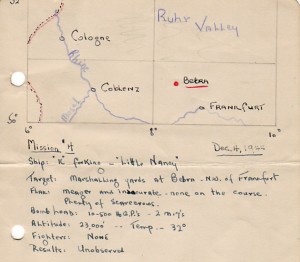 52
Ruhr Valley
Cologne
Rhine
Bebra
Coblenz
Frankfurt
50
6° 8° 10°
Mission #4 Dec. 4, 1944
Ship: "K" for King - "Little Nancy"
Target: Marshalling yards at Bebra - N.W. of Frankfurt
Flak: meager and inaccurate - none on the course.
Plenty of scarecrows.
Bomb load: 10-500 lb G.P.'s - 2 m-17's
Altitude: 23,000' -- Temp. - 32°
Fighters: None
Results: Unobserved